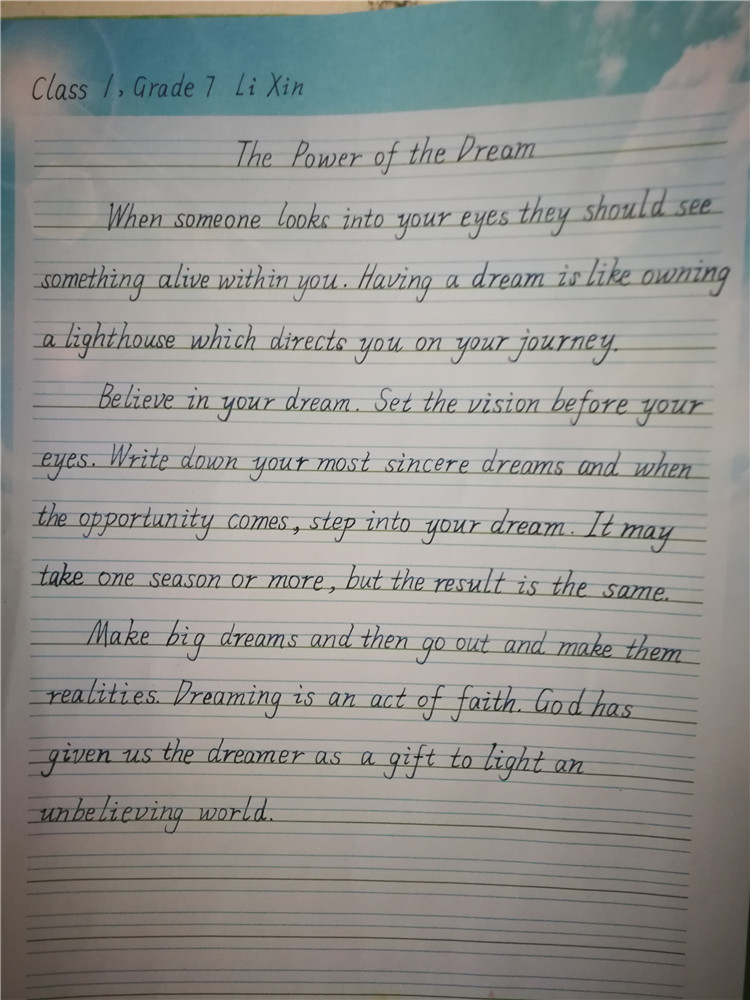 Class 1, Grade 7 Li Xin
The Power of the Dream
When someone looks into your eyes they should see
something alive within you. Having a dream is like owning
a lighthouse which directs you on your journey.
Believe in your dream. Set the vision before your
eyes. Write down your most sincere dreams and when
the opportunity comes, step into your dream. It may
take one season or more, but the result is the same.
Make big dreams and then go out and make them
realities. Dreaming is an act of faith. God has
given us the dreamer as a gift to light an
unbelieving world.